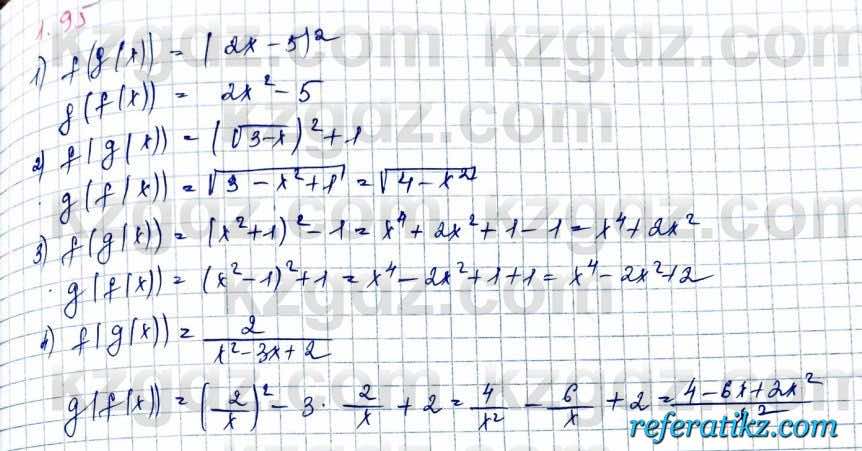 1.95
1) f(g(x)) = (2x - 5)²
g(f(x)) = 2x² - 5
2) f(g(x)) = (√3-x)² + 1
g(f(x)) = √3 - x² + 1 = √4 - x²
3) f(g(x)) = (x²+1)² - 1 = x⁴ + 2x² + 1 - 1 = x⁴ + 2x²
g(f(x)) = (x²-1)² + 1 = x⁴ - 2x² + 1 + 1 = x⁴ - 2x² + 2
4) f(g(x)) = 2/(x² - 3x + 2)
g(f(x)) = (2/x)² - 3 · 2/x + 2 = 4/x² - 6/x + 2 = (4 - 6x + 2x²)/x²
kzgdz.com
referatikz.com